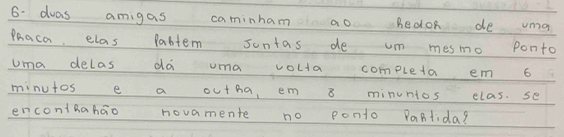 6- duas amigas caminham ao Redor de uma
PRaca, elas PaRtem Juntas de um mesmo Ponto
uma delas dá uma volta completa em 6
minutos e a outRa, em 8 minuntos elas. se
encontRaRão novamente no ponto PaRtida?